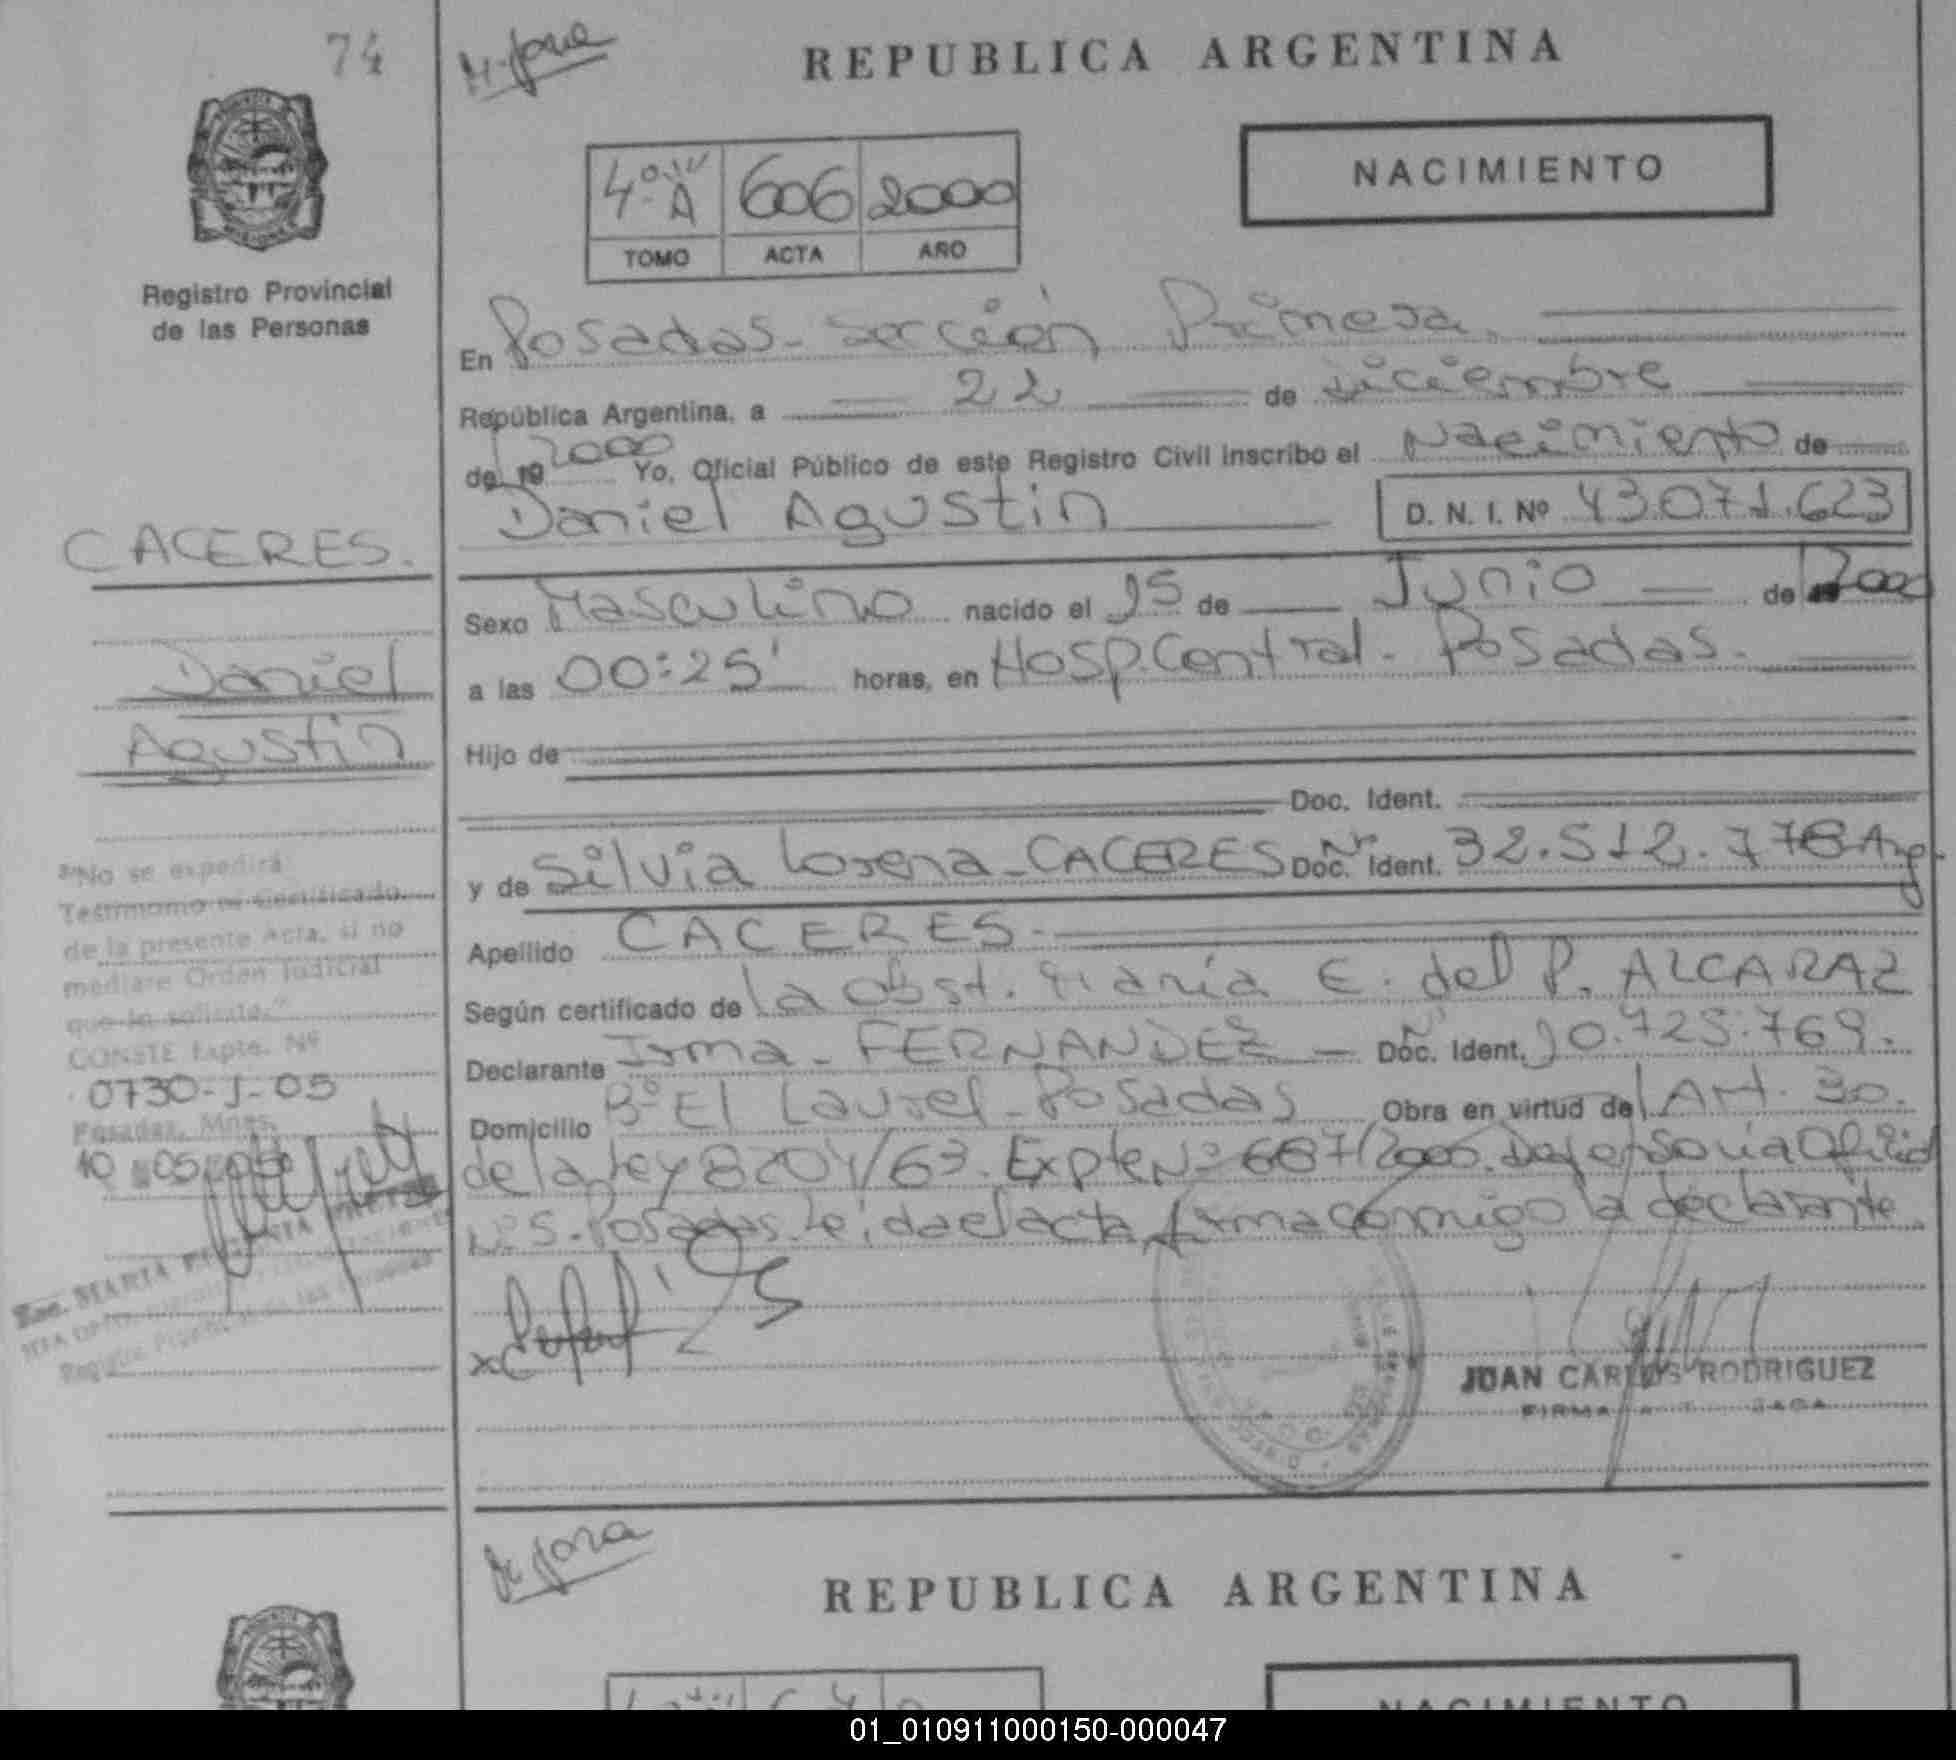 74
REPUBLICA ARGENTINA
4º "A" 606 2000
TOMO ACTA AÑO
NACIMIENTO
Registro Provincial
de las Personas
En Posadas - Sección Primera.
República Argentina, a 22 de diciembre
de 19 2000 Yo, Oficial Público de este Registro Civil inscribo el Nacimiento de
Daniel Agustin D. N. I. Nº 43.071.623
CACERES.
Daniel
Agustin
Sexo Masculino nacido el 15 de Junio de 2000
a las 00:25' horas, en Hosp. Central. Posadas.
Hijo de
Doc. Ident.
y de Silvia Lorena CACERES Doc. Ident. 32.512.778 Arg.
Apellido CACERES.
Según certificado de la Obst. María E. del P. ALCARAZ
Declarante Irma - FERNANDEZ - Doc. Ident. 10.725.769.
Domicilio Bº El Laurel - Posadas Obra en virtud del Art. 30.
de la ley 8204/63. Expte Nº 687/2000. Defensoria Oficial
Nº 5. Posadas. Leida el acta, firma conmigo la declarante.
"No se expedirá
Testimonio ni Certificado.
de la presente Acta, si no
mediare Orden Judicial
que lo solicite."
CONSTE Expte. Nº
0730-J-05
Posadas, Mnes.
10 05 05
JUAN CARLOS RODRIGUEZ
FIRMA
REPUBLICA ARGENTINA
NACIMIENTO
01_010911000150-000047